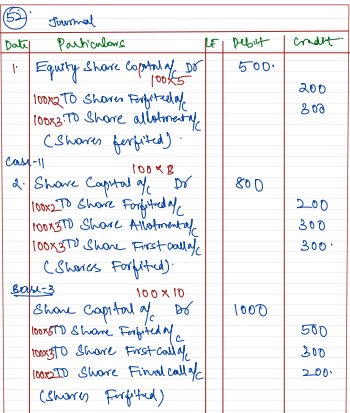 52.
Journal
Date Particulars LF Debit Credit
1. Equity Share Capital a/c Dr 500.
100×5
100×2 TO Shares Forfited a/c 200
100×3 TO Share allotment a/c 300
(Shares forfited).
Case-11
100×8
2. Share Capital a/c Dr 800
100×2 TO Share Forfited a/c 200
100×3 TO Share Allotment a/c 300
100×3 TO Share First call a/c 300.
(Shares Forfited).
Case-3
100×10
Share Capital a/c Dr 1000
100×5 TO Share Forfited a/c 500
100×3 TO Share First call a/c 300
100×2 TO Share Final call a/c 200.
(Shares Forfited)